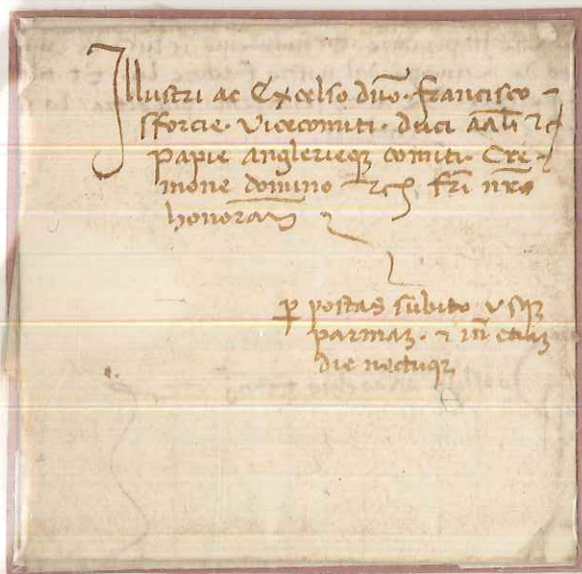 Illustri ac Excelso dño. francisco
sforcie. Vicecomiti. duci
papie anglerieqз comiti. Cre-
mone domino fri nro
honoran̄
ꝑ postas subito usqз
parmaз. ⁊ in̄ etiaз
die noctuqз